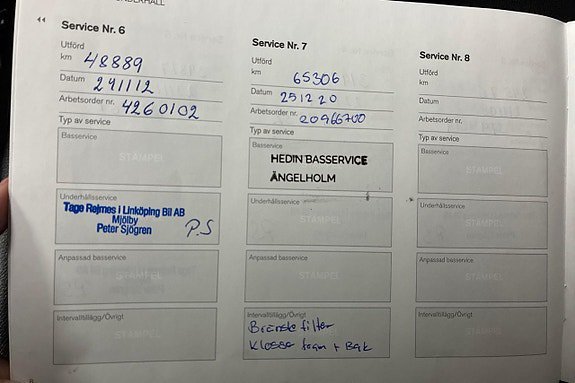 Service Nr. 6
Utförd
km 48889
Datum 291112
Arbetsorder nr. 4260102
Typ av service
Basservice
STÄMPEL
Underhållsservice
Tage Rejmes i Linköping Bil AB
Mjölby
Peter Sjögren P.S
Anpassad basservice
STÄMPEL
Intervalltillägg/Övrigt
STÄMPEL
Service Nr. 7
Utförd
km 65306
Datum 251220
Arbetsorder nr. 20966700
Typ av service
Basservice
HEDIN BASSERVICE
ÄNGELHOLM
Underhållsservice
STÄMPEL
Anpassad basservice
STÄMPEL
Intervalltillägg/Övrigt
Bränsle filter
Klossar fram + Bak
Service Nr. 8
Utförd
km
Datum
Arbetsorder nr.
Typ av service
Basservice
STÄMPEL
Underhållsservice
STÄMPEL
Anpassad basservice
STÄMPEL
Intervalltillägg/Övrigt
STÄMPEL